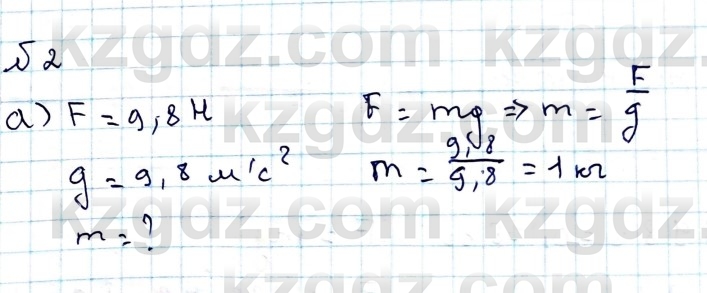 №2
а) F = 9,8 Н F = mg ⇒ m = F/g
g = 9,8 м/с² m = 9,8/9,8 = 1 кг
m = ?
kzgdz.com kzgdz.com
kzgdz.com kzgdz.com
kzgdz.com kzgdz.com